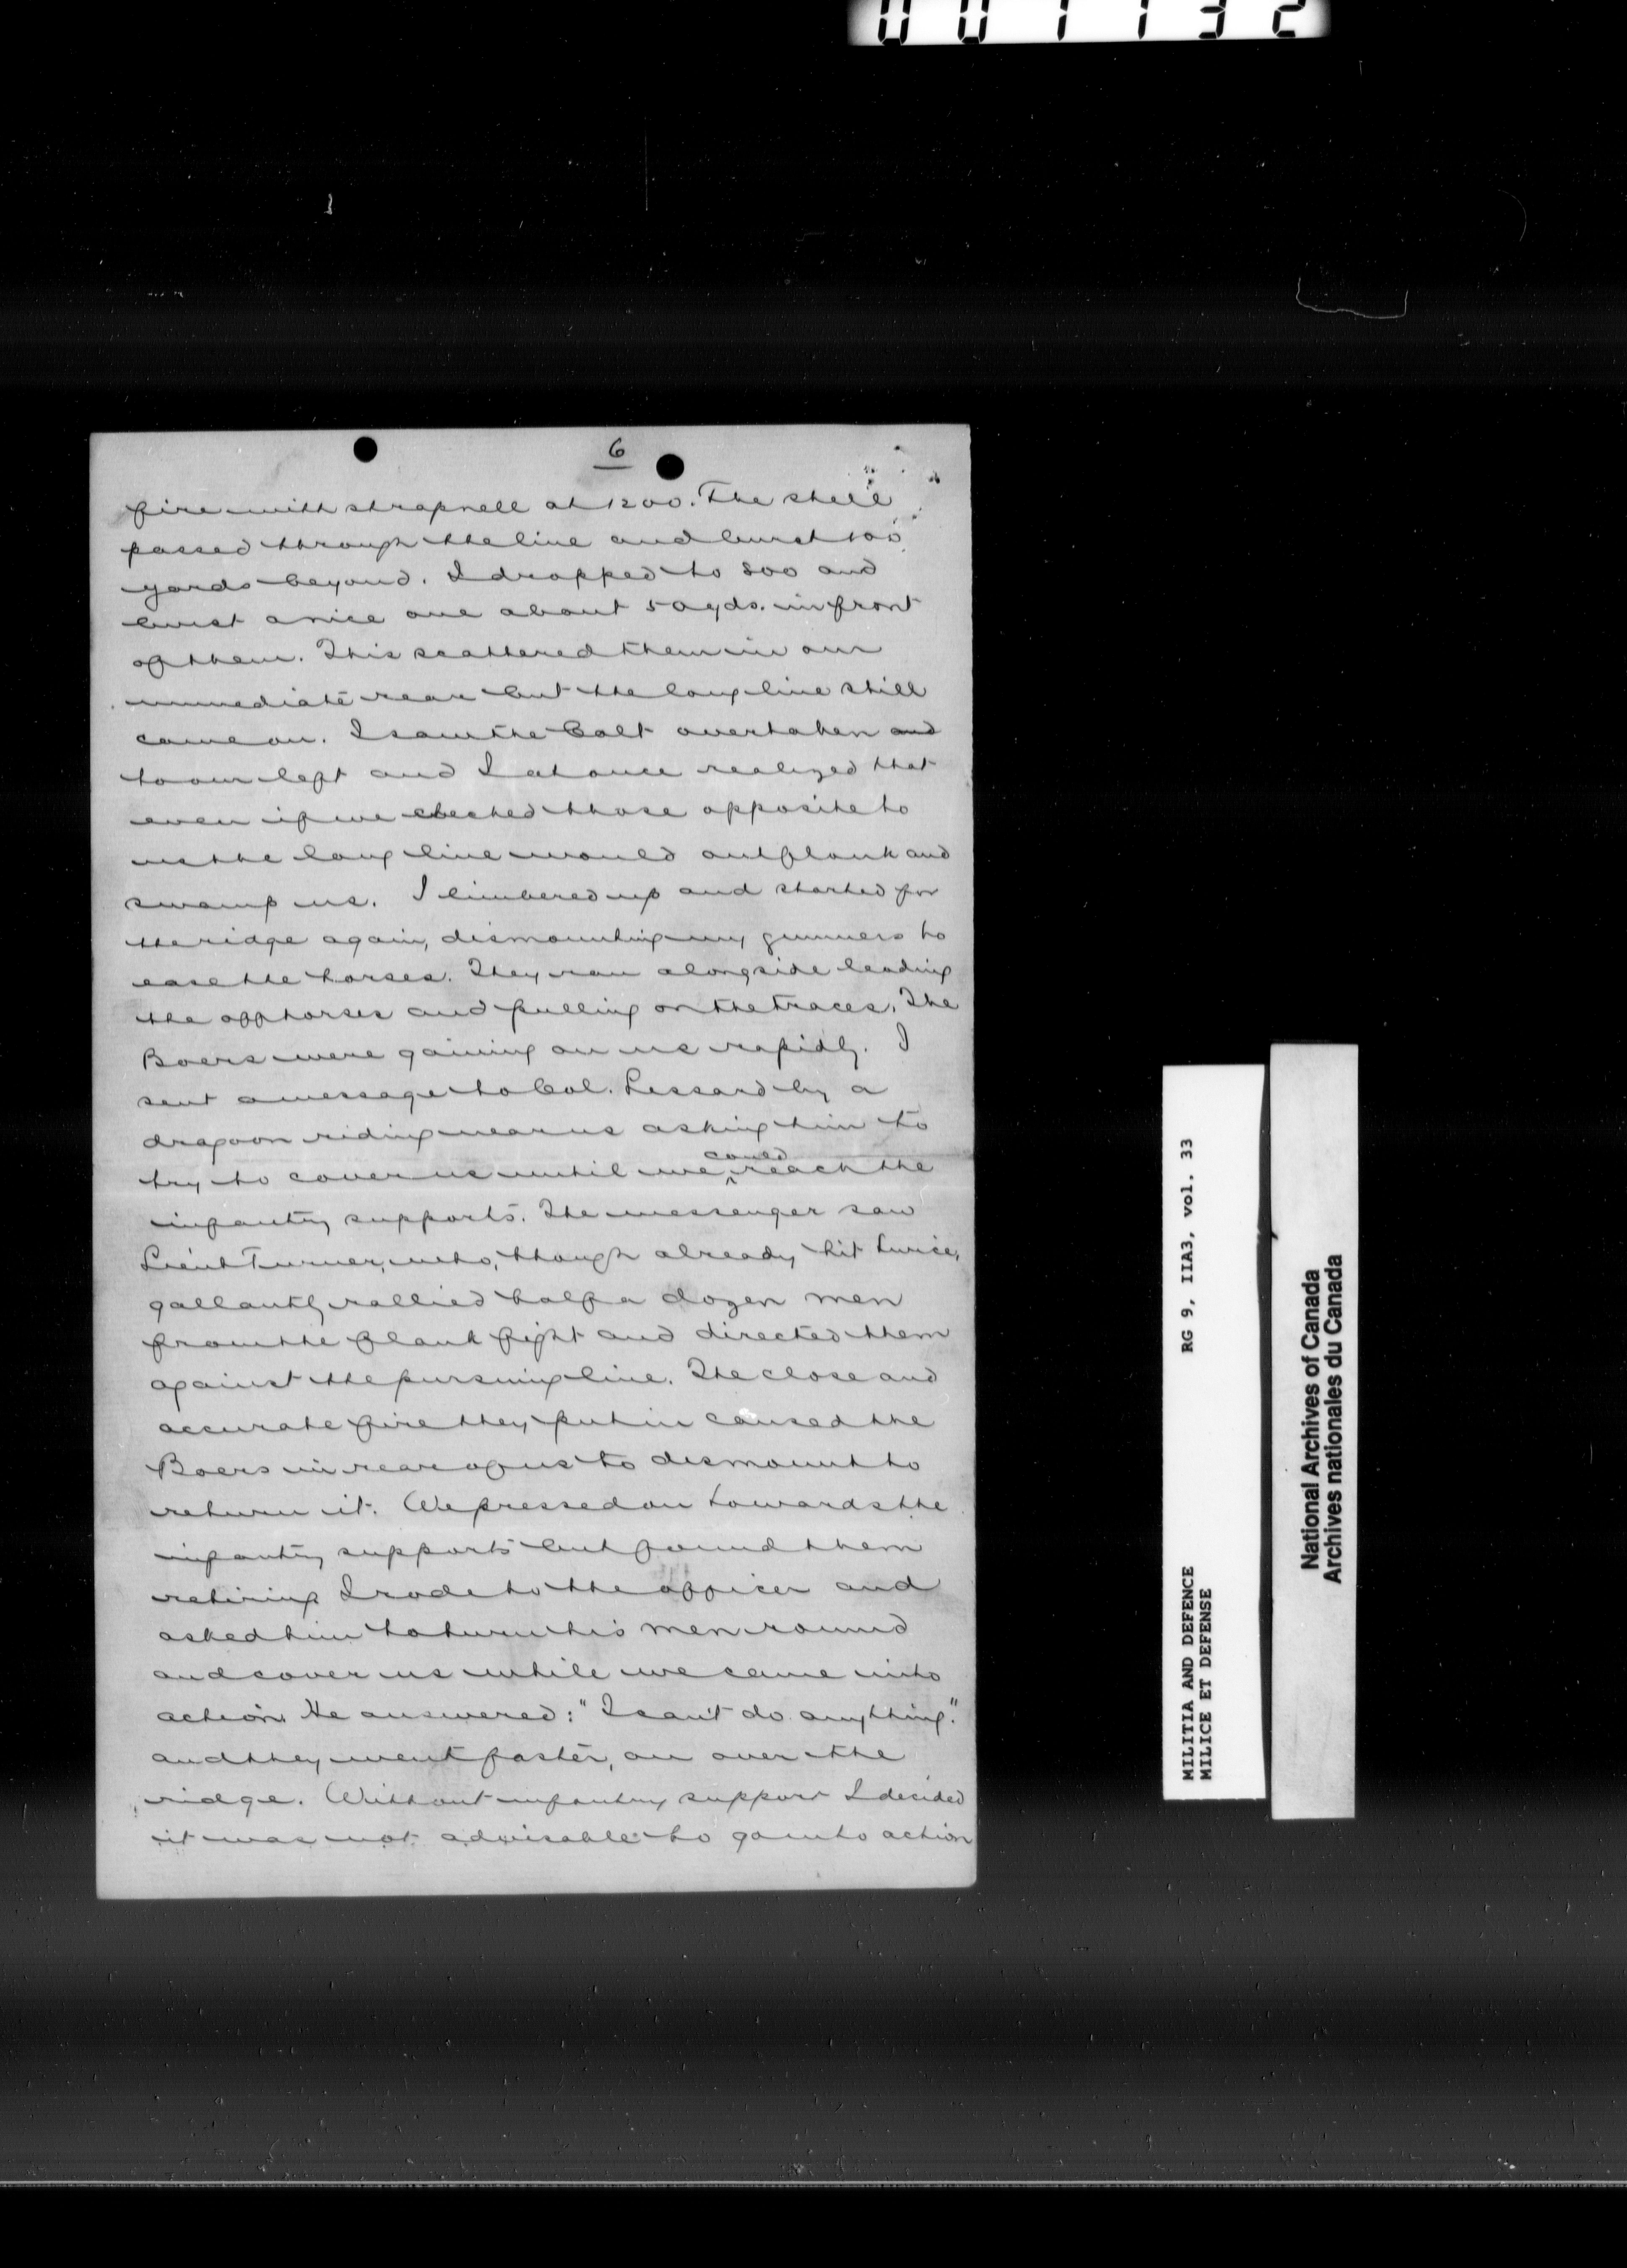 001132
6
fire with shrapnell at 1200. The shell
passed through the line and burst 100
yards beyond. I dropped to 800 and
burst a nice one about 50 yds. in front
of them. This scattered them in our
immediate rear but the long line still
came on. I saw the Colt overtaken and
to our left and I at once realized that
even if we checked those opposite to
us the long line would outflank and
swamp us. I limbered up and started for
the ridge again, dismounting my gunners to
ease the horses. They ran alongside leading
the off horses and pulling on the traces. The
Boers were gaining on us rapidly. I
sent a message to Col. Lessard by a
dragoon riding near us asking him to
try to cover us until we could reach the
infantry supports. The messenger saw
Lieut Turner, who, though already hit twice,
gallantly rallied half a dozen men
from the flank fight and directed them
against the pursuing line. The close and
accurate fire they put in caused the
Boers in rear of us to dismount to
return it. We pressed on towards the
infantry supports but found them
retiring I rode to the officer and
asked him to turn his men round
and cover us while we came into
action. He answered: "I can't do anything."
and they went faster, on over the
ridge. Without infantry support I decided
it was not advisable to go into action
MILITIA AND DEFENCE RG 9, IIA3, vol. 33
MILICE ET DEFENSE
National Archives of Canada
Archives nationales du Canada